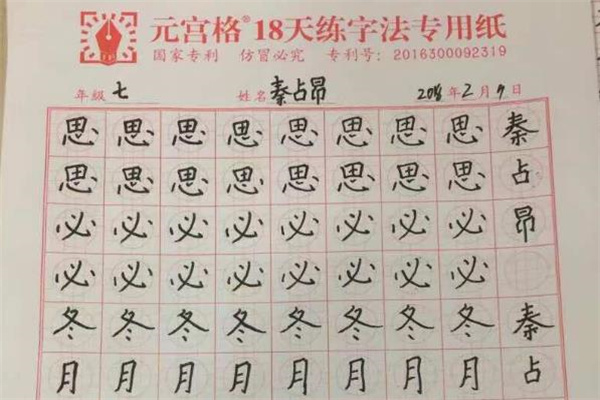 元宫格®18天练字法专用纸
国家专利 仿冒必究 专利号：2016300092319
年级 七 姓名 秦占昂 2018年2月9日
思思思思思思思思秦
思思思思思思思思占
必必必必必必必必昂
必必必必必必必必
冬冬冬冬冬冬冬冬秦
月月月月月月月月占